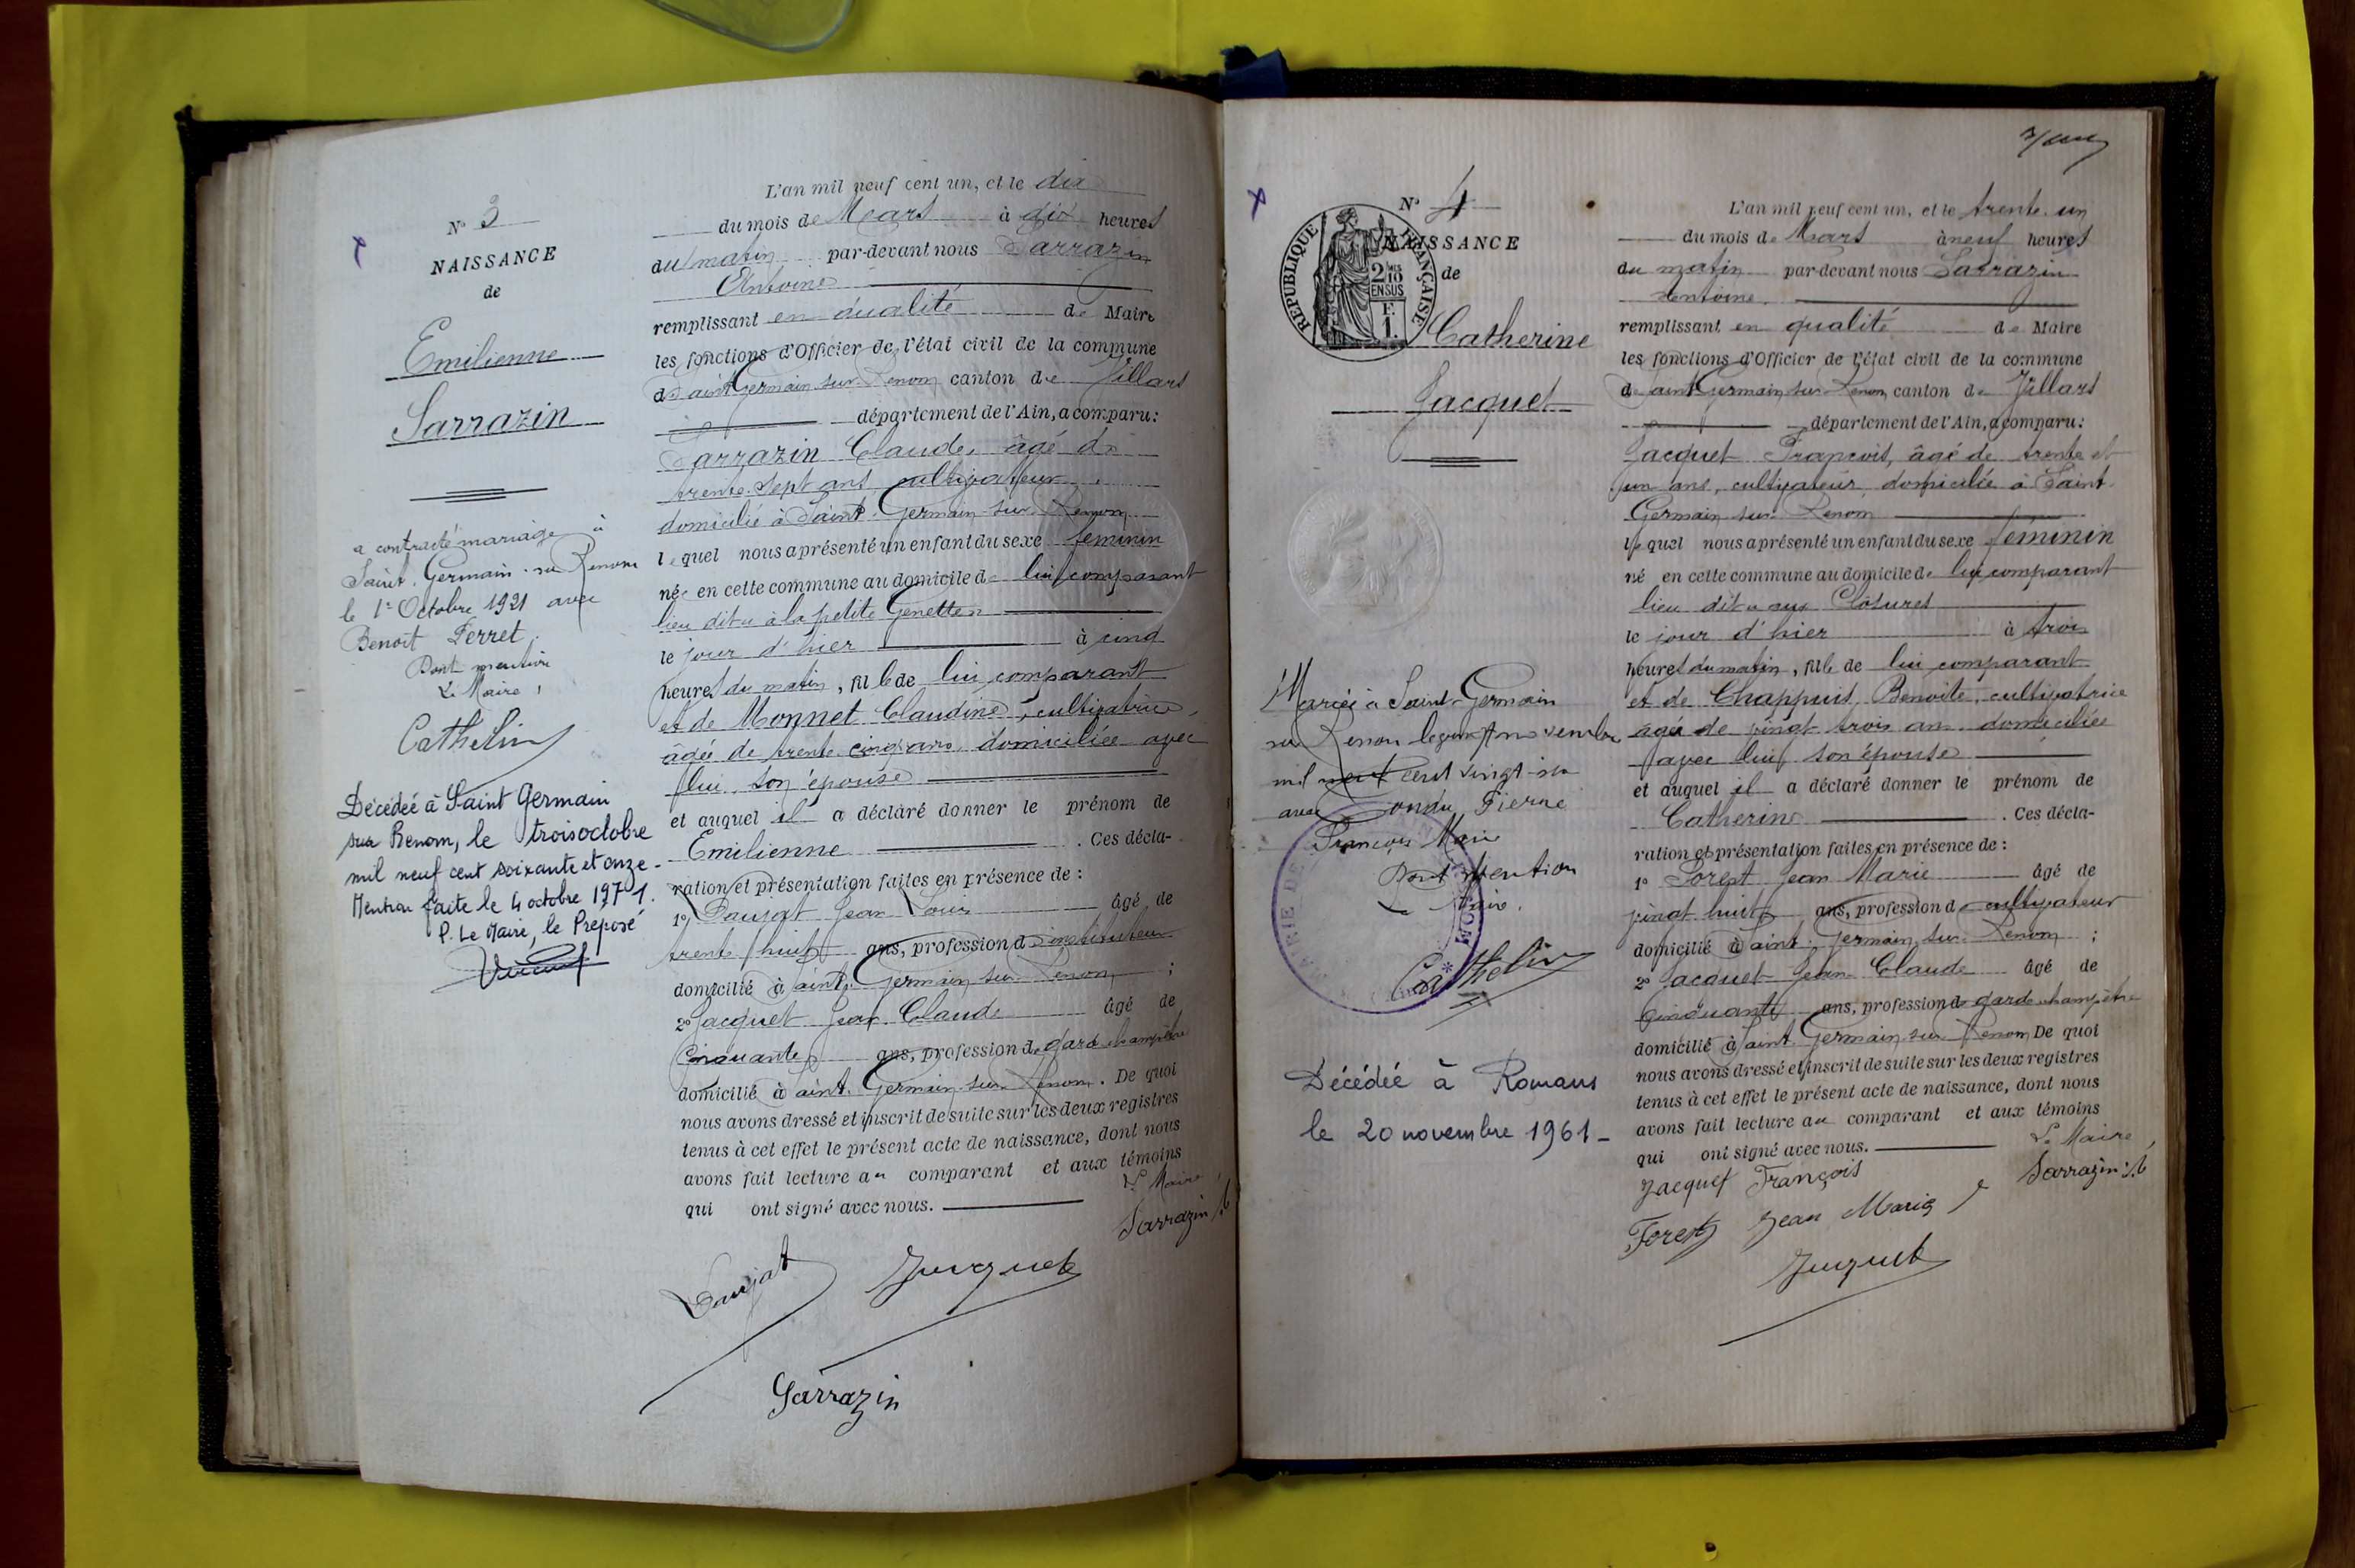 N° 3
NAISSANCE
de
Emilienne
Sarrazin
a contracté mariage à
Saint-Germain-sur Renom
le 1er Octobre 1921 avec
Benoit Ferret.
Dont mention
Le Maire,
Cathelin
Décédée à Saint Germain
sur Renom, le trois octobre
mil neuf cent soixante et onze -
Mention faite le 4 octobre 1971.
P. Le Maire, le Préposé
L'an mil neuf cent un, et le dix
du mois de Mars à dix heures
du matin par-devant nous Sarrazin
Antoine
remplissant en qualité de Maire
les fonctions d'Officier de l'état civil de la commune
de Saint Germain sur Renom canton de Villars
département de l'Ain, a comparu :
Sarrazin Claude, âgé de
trente-sept ans, cultivateur,
domicilié à Saint-Germain-sur-Renom
lequel nous a présenté un enfant du sexe féminin
née en cette commune au domicile de lui comparant
lieu dit « à la petite Genette »
le jour d'hier à cinq
heures du matin, fille de lui comparant
et de Monnet Claudine, cultivatrice,
âgée de trente cinq ans, domiciliée avec
lui, son épouse
et auquel il a déclaré donner le prénom de
Emilienne . Ces décla-
ration et présentation faites en présence de :
1° Paujat Jean Louis âgé de
trente huit ans, profession d'instituteur
domicilié à Saint-Germain-sur-Renom ;
2° Jacquet Jean Claude âgé de
Cinquante ans, profession de garde champêtre
domicilié à Saint-Germain-sur-Renom. De quoi
nous avons dressé et inscrit de suite sur les deux registres
tenus à cet effet le présent acte de naissance, dont nous
avons fait lecture au comparant et aux témoins
qui ont signé avec nous.
Le Maire
Sarrazin
Paujat Jacquet
Sarrazin
N° 4
NAISSANCE
de
RÉPUBLIQUE FRANÇAISE
2/10 EN SUS
F. 1.
Catherine
Jacquet
Mariée à Saint-Germain
sur Renom le vingt novembre
mil neuf cent vingt-six
avec Pierre
François Marie
Dont mention
Le Maire.
MAIRIE DE
Cathelin
Décédée à Romans
le 20 novembre 1961 -
L'an mil neuf cent un, et le trente-un
du mois de Mars à neuf heures
du matin par-devant nous Sarrazin
Antoine.
remplissant en qualité de Maire
les fonctions d'Officier de l'état civil de la commune
de Saint Germain sur Renom, canton de Villars
département de l'Ain, a comparu :
Jacquet François, âgé de trente et
un ans, cultivateur, domicilié à Saint-
Germain-sur-Renom
lequel nous a présenté un enfant du sexe féminin
né en cette commune au domicile de lui comparant
lieu dit « aux Clôtures
le jour d'hier à trois
heures du matin, fille de lui comparant
et de Chappuis Benoite, cultivatrice
âgée de vingt trois ans domiciliée
avec lui, son épouse
et auquel il a déclaré donner le prénom de
Catherine . Ces décla-
ration et présentation faites en présence de :
1° Forest Jean Marie âgé de
vingt huit ans, profession de cultivateur
domicilié à Saint-Germain-sur-Renom ;
2° Jacquet Jean Claude âgé de
Cinquante ans, profession de garde champêtre
domicilié à Saint-Germain-sur-Renom De quoi
nous avons dressé et inscrit de suite sur les deux registres
tenus à cet effet le présent acte de naissance, dont nous
avons fait lecture au comparant et aux témoins
qui ont signé avec nous.
Le Maire,
Jacquet François Sarrazin
Forest Jean Marie
Jacquet